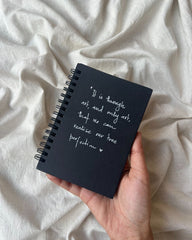 "It is through
art, and only art,
that we can
realise our true
perfection. ♥